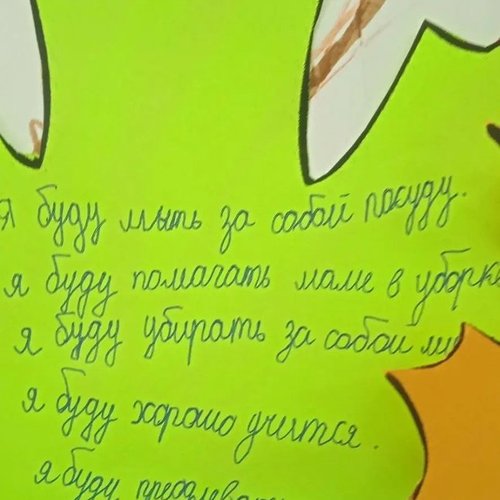 Я буду мыть за собой посуду.
я буду помагать маме в уборке
я буду убирать за собой
я буду хорошо учится.
я буду